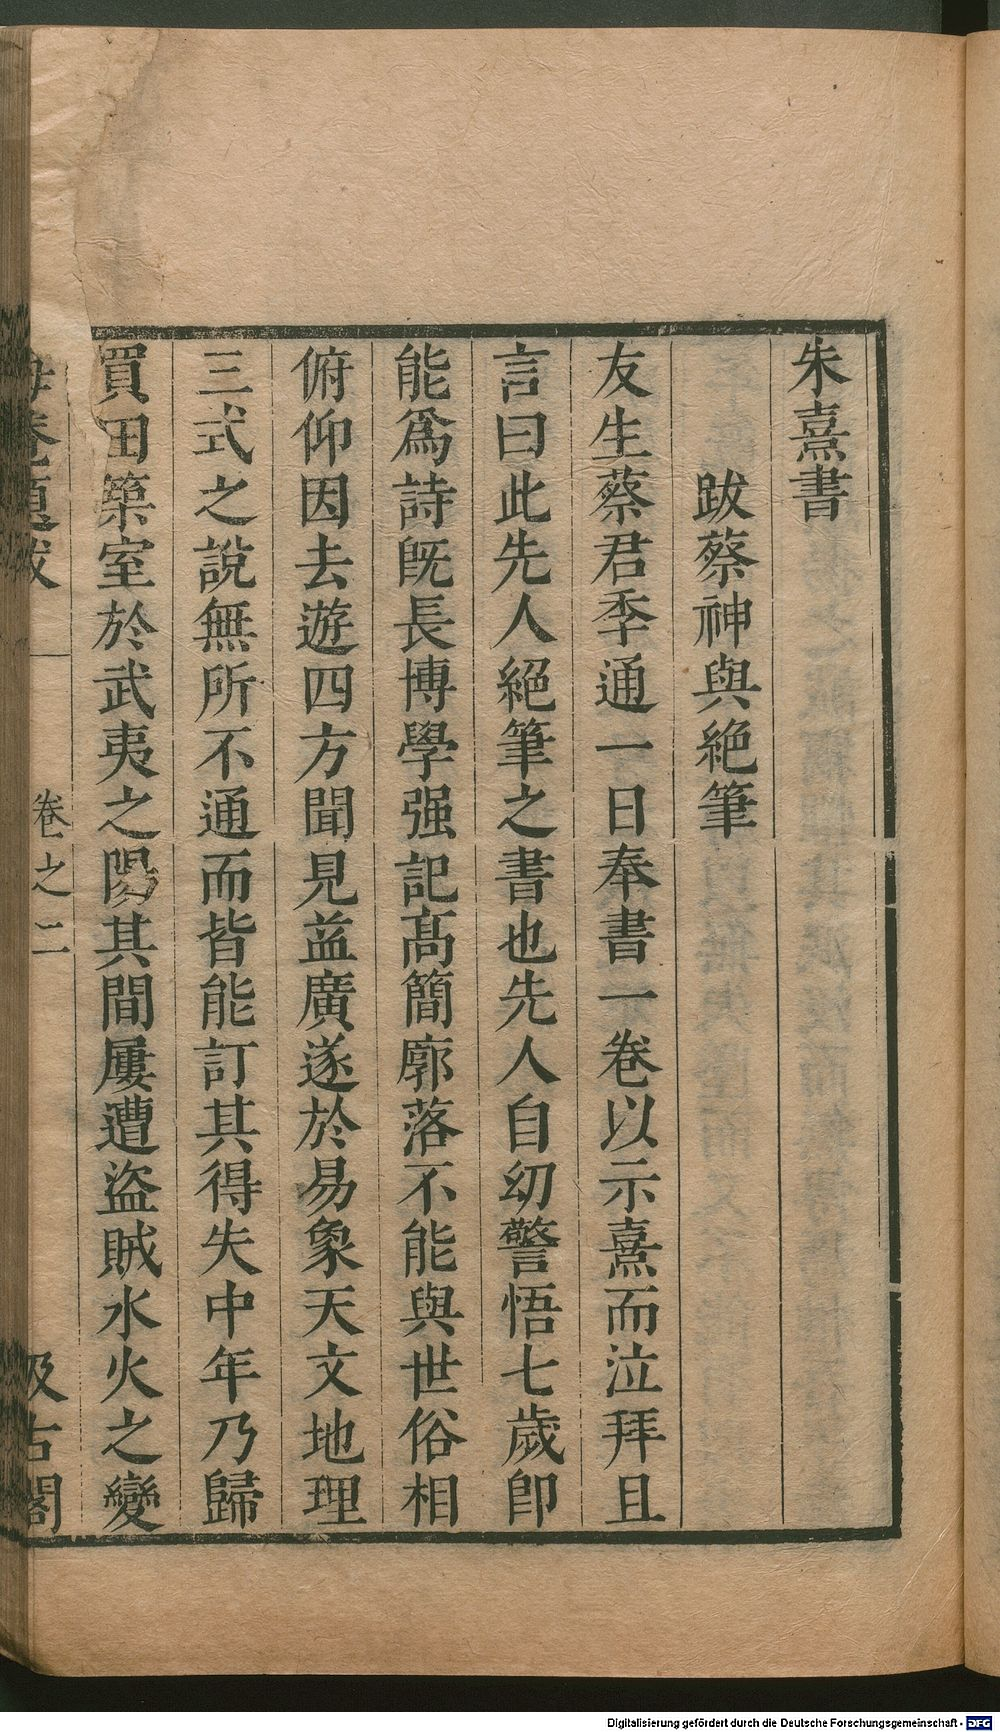 朱熹書
跋蔡神與絶筆
友生蔡君季通一日奉書一卷以示熹而泣拜且
言曰此先人絶筆之書也先人自幼警悟七歲卽
能爲詩旣長博學强記髙簡廓落不能與世俗相
俯仰因去遊四方聞見益廣遂於易象天文地理
三式之說無所不通而皆能訂其得失中年乃歸
買田築室於武夷之陽其間屢遭盜賊水火之變
卷之二
汲古閣
Digitalisierung gefördert durch die Deutsche Forschungsgemeinschaft - DFG